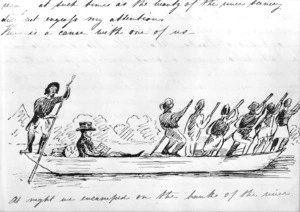 at such times as the beauty of the river scenery
did not engross my attention
This is a canoe with one of us
At night we encamped on the banks of the river